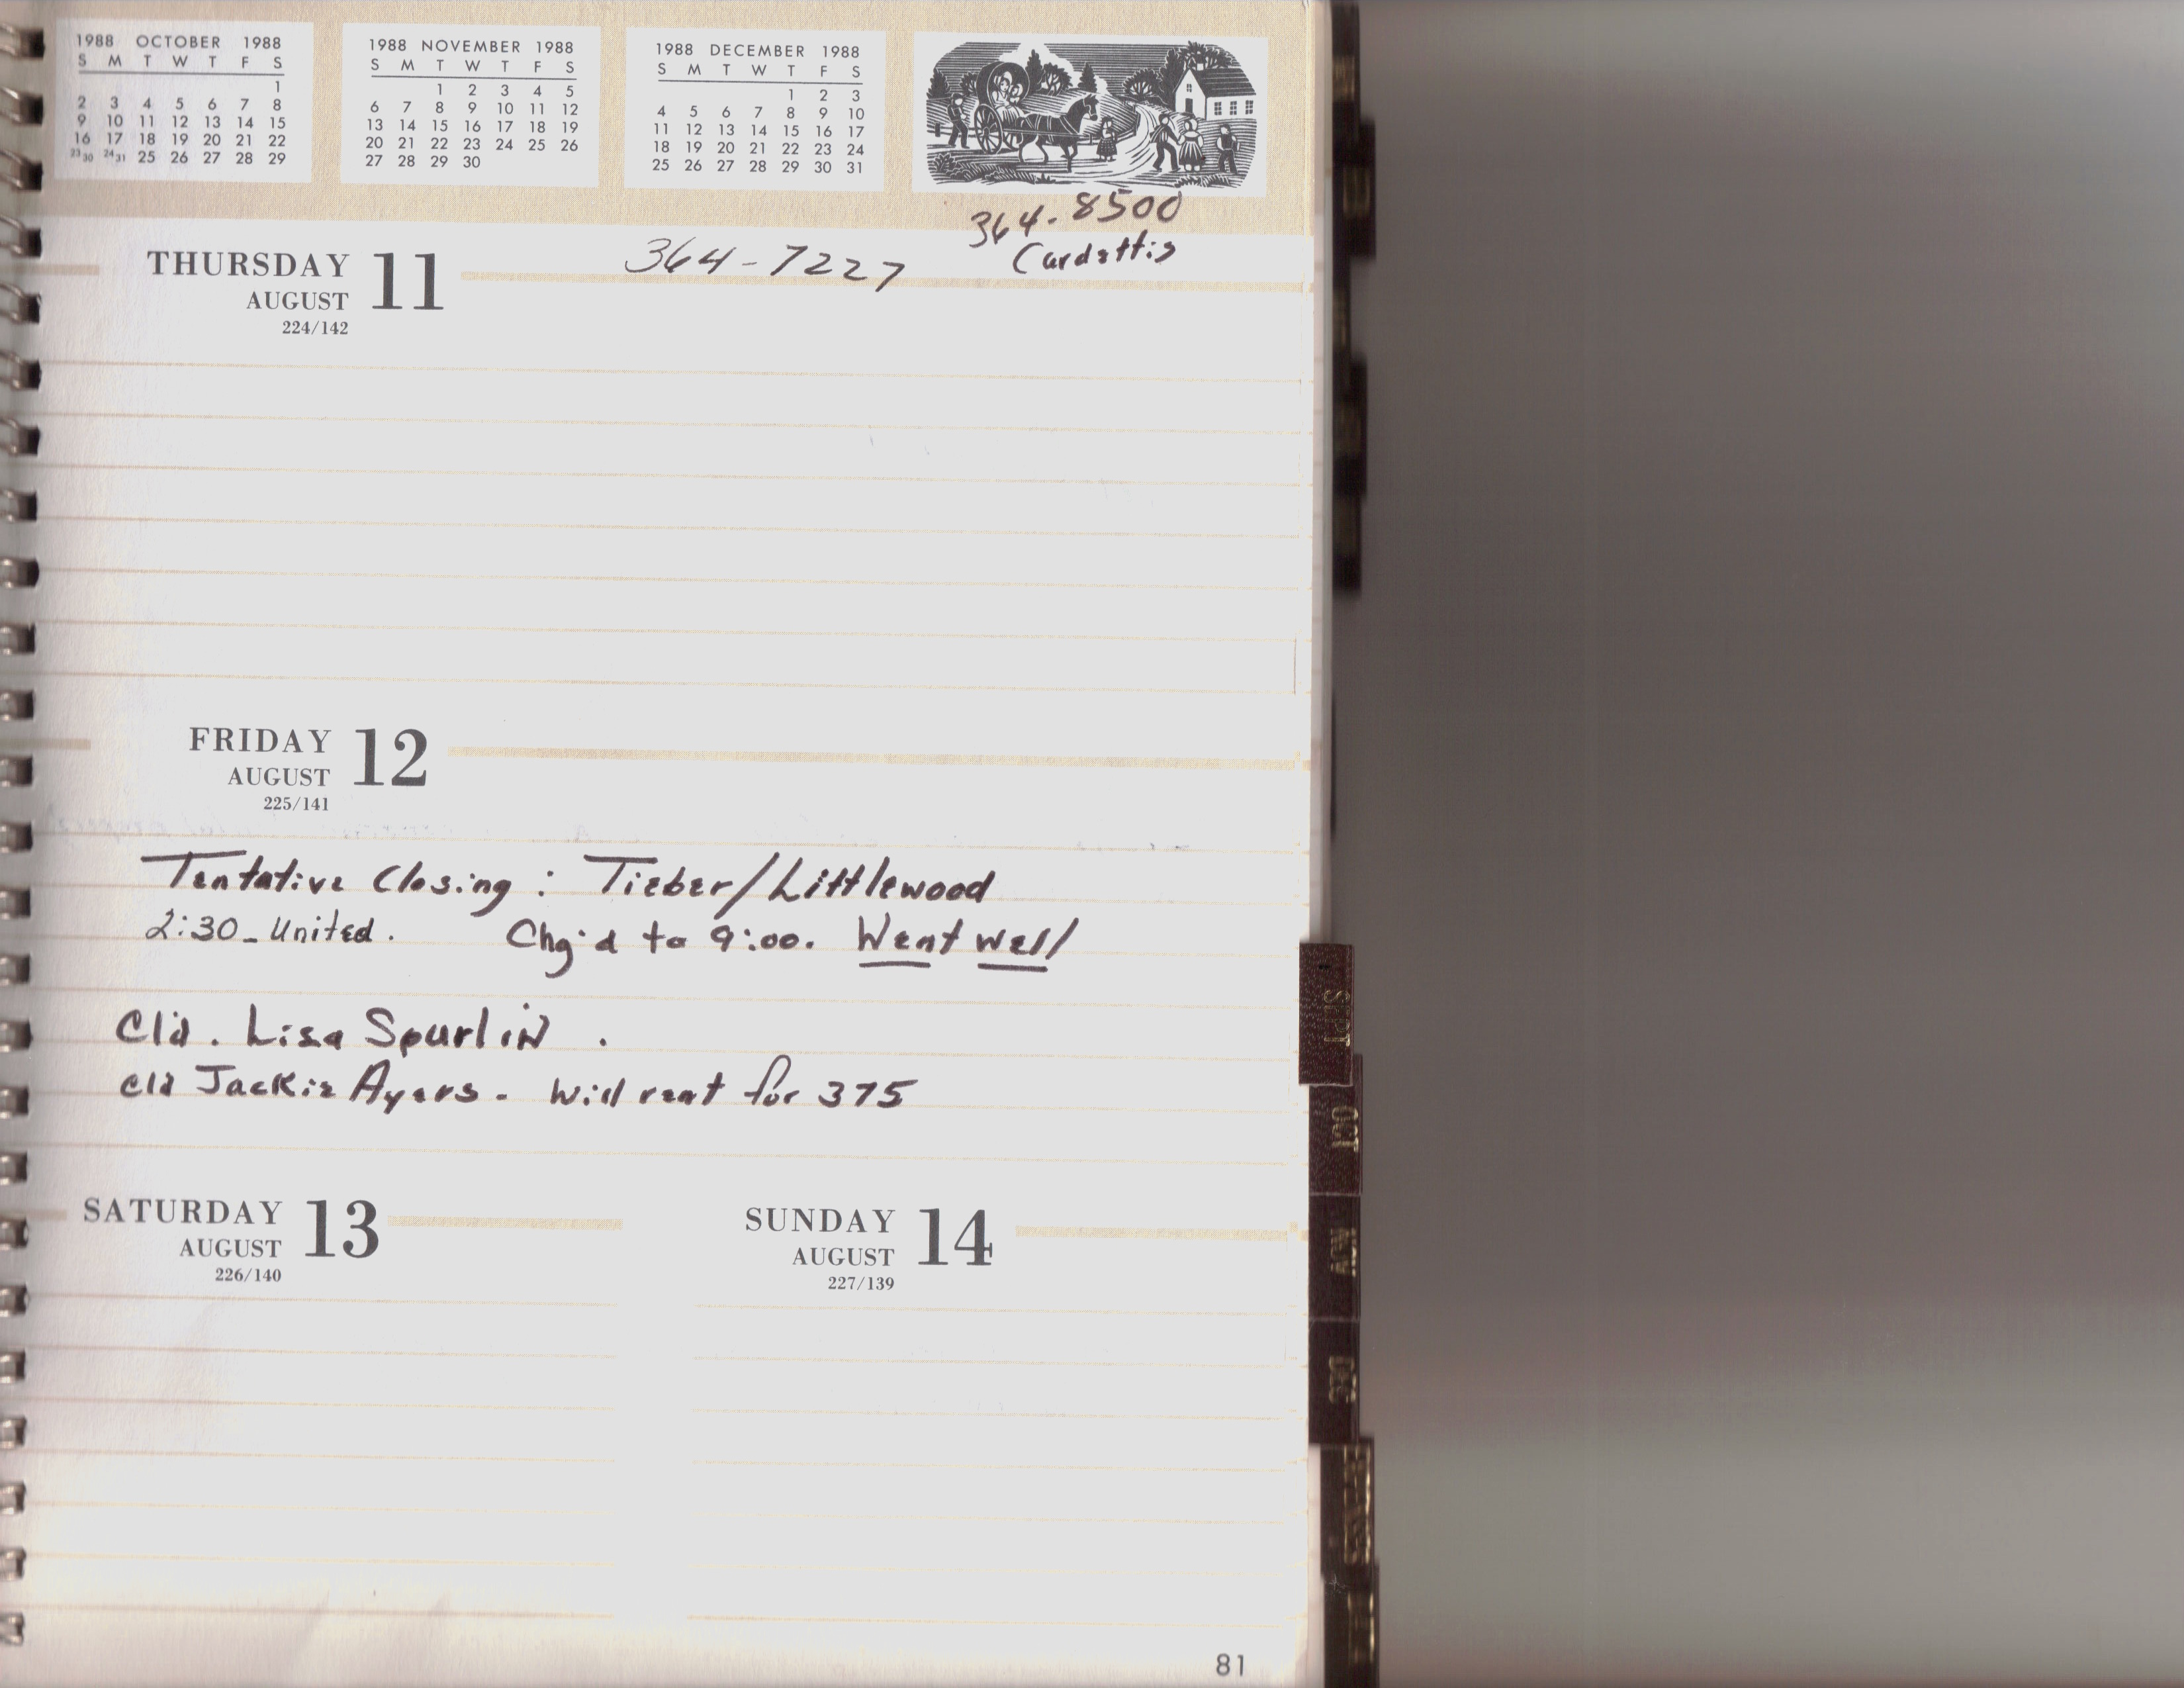 1988 OCTOBER 1988
S M T W T F S
1
2 3 4 5 6 7 8
9 10 11 12 13 14 15
16 17 18 19 20 21 22
23 30 24 31 25 26 27 28 29
1988 NOVEMBER 1988
S M T W T F S
1 2 3 4 5
6 7 8 9 10 11 12
13 14 15 16 17 18 19
20 21 22 23 24 25 26
27 28 29 30
1988 DECEMBER 1988
S M T W T F S
1 2 3
4 5 6 7 8 9 10
11 12 13 14 15 16 17
18 19 20 21 22 23 24
25 26 27 28 29 30 31
364-8500
Cardettis
364-7227
THURSDAY 11
AUGUST
224/142
FRIDAY 12
AUGUST
225/141
Tentative Closing : Tieber/Littlewood
2:30 - United. Chg'd to 9:00. Went well
Cl'd. Lisa Spurlin.
Cl'd Jackie Ayers - Will rent for 375
SATURDAY 13
AUGUST
226/140
SUNDAY 14
AUGUST
227/139
SEPT
OCT
NOV
DEC
81